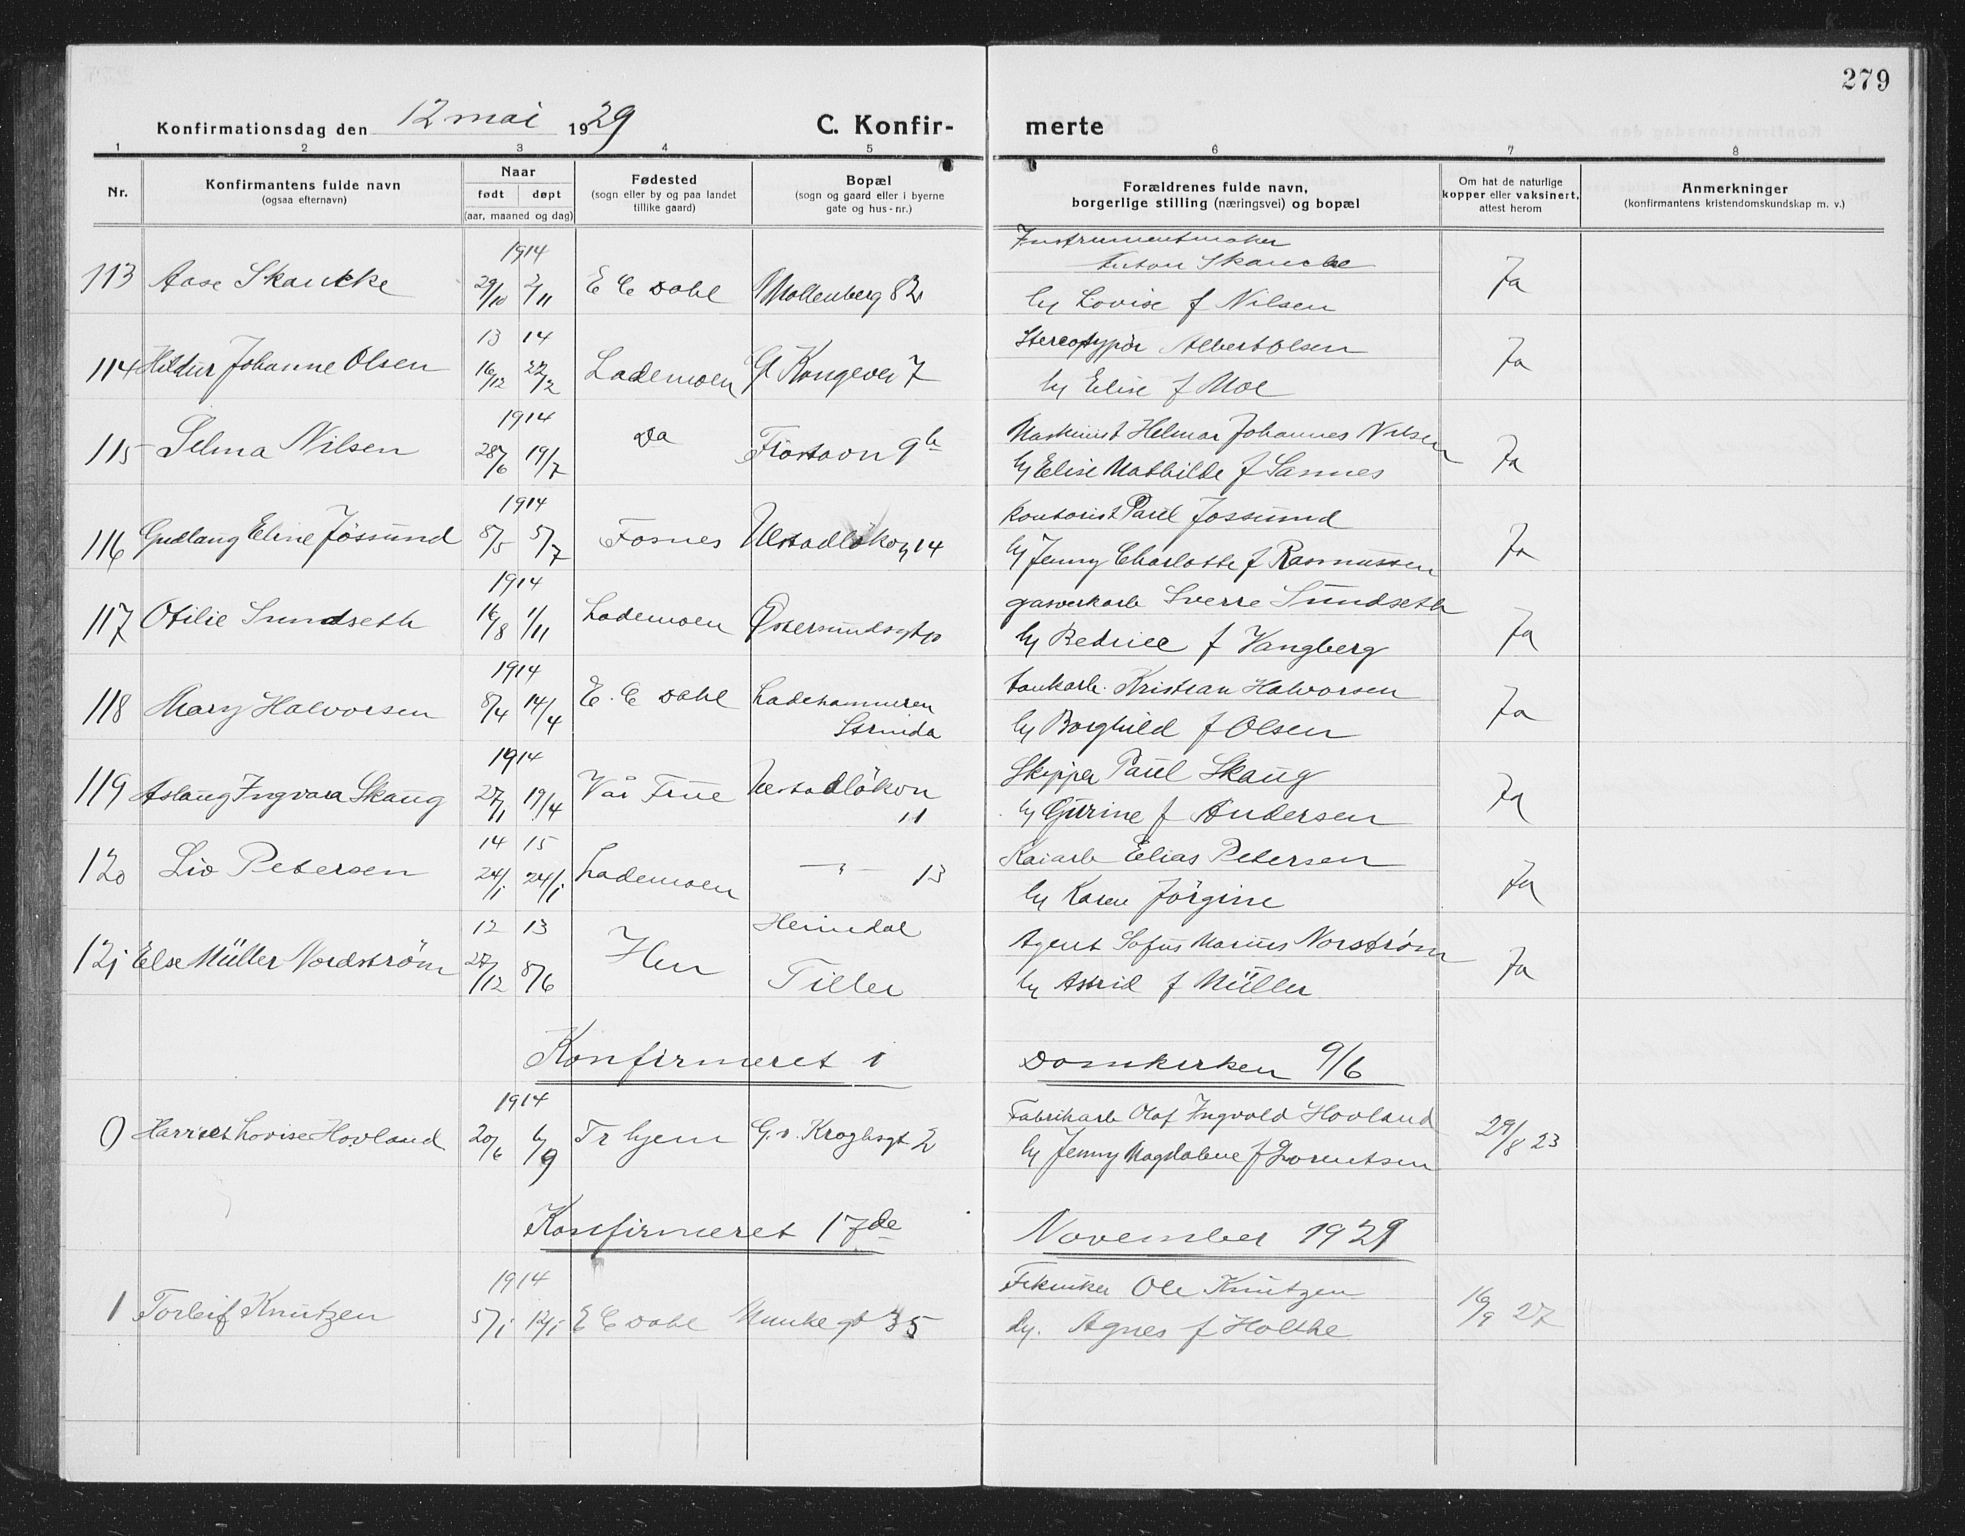 279
Konfirmationsdag den 12 mai 1929 C. Konfir- merte
1 2 3 4 5 6 7 8
Nr.
Konfirmantens fulde navn
(ogsaa efternavn)
Naar
født døpt
(aar, maaned og dag)
Fødested
(sogn eller by og paa landet
tillike gaard)
Bopæl
(sogn og gaard eller i byerne
gate og hus-nr.)
Forældrenes fulde navn,
borgerlige stilling (næringsvei) og bopæl
Om hat de naturlige
kopper eller vaksinert,
attest herom
Anmerkninger
(konfirmantens kristendomskundskap m. v.)
1914 Instrumentmaker
113 Aase Skancke 29/10 2/11 E C Dahl Mollenberg 82 Anton Skancke Ja
Lovise f Nilsen
13 14 Stereotypør Albert Olsen
114 Hildur Johanne Olsen 16/12 22/2 Lademoen Gl Kongevei 7 Ja
Elise f Moe
1914 Da Maskinist Helmar Johannes Nilsen
115 Selma Nilsen 28/6 19/7 9b Ja
Elise Mathilde f Sannes
1914 Kontorist Paul Jøssund
116 Gudlaug Eline Jøssund 8/5 5/7 Fosnes 14 Ja
Jenny Charlotte f Rasmussen
1914 gasverkarb Sverre Sundseth
117 Otilie Sundseth 16/8 1/11 Lademoen Østersundsgt 10 Ja
f Vangberg
1914 Kristian Halvorsen
118 Mary Halvorsen 8/4 14/4 E. C Dahl Ladehammeren Ja
Strinda Borghild f Olsen
1914 Skipper Paul Skaug
119 Aslaug Ingvara Skaug 27/1 19/4 Vår Frue Ja
11 Gurine f Andersen
14 15 Kaiarb Elias Petersen
120 Liv Petersen 24/1 24/1 Lademoen — " — 13 Ja
Karen Jörgine
12 13 Heimdal Agent Sofus Marius Norstrøm
121 Else Müller Nordstrøm 27/12 8/6 Hen Ja
Tiller Astrid f Müller
Konfirmeret i Domkirken 9/6
1914 Fabrikarb Olaf Ingvald Hovland
0 Harriet Lovise Hovland 20/6 6/9 Tr hjem G. v. Kroghsgt 2 29/8 23
Jenny Magdalene f Lorentsen
Konfirmeret 17de November 1929
1914 Tekniker Ole Knutzen
1 Torleif Knutzen 5/1 12/1 E C Dahl Munkegt 35 16/9 27
Agnes f Holthe